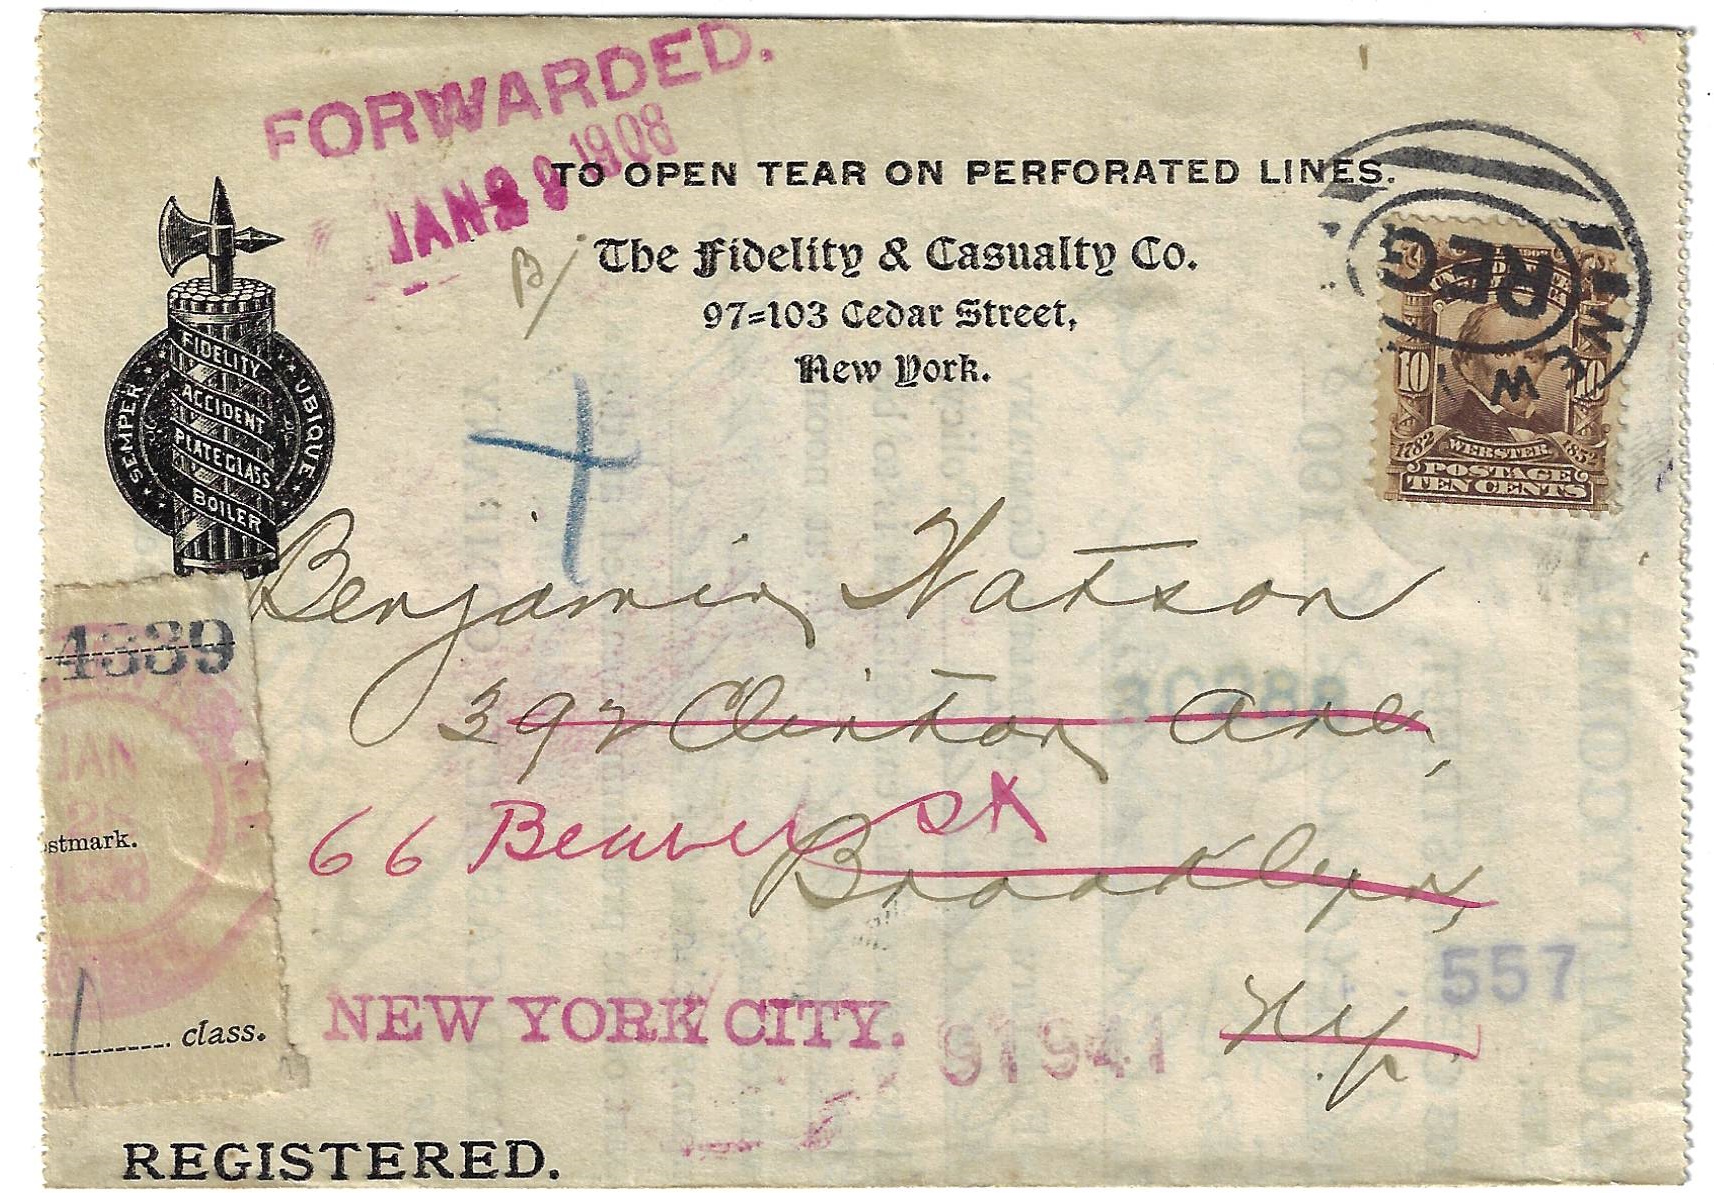 FORWARDED.
JAN 29 1908
TO OPEN TEAR ON PERFORATED LINES.
The Fidelity & Casualty Co.
97=103 Cedar Street,
New York.
B/
SEMPER UBIQUE
FIDELITY
ACCIDENT
PLATE GLASS
BOILER
REG
10 10
1782 WEBSTER 1852
POSTAGE
TEN CENTS
Benjamin Watson
392 Clinton Ave,
66 Beaver St
Brooklyn,
N.Y.
4339
JAN
28
1908
stmark.
class.
557
NEW YORK CITY. 91941
REGISTERED.